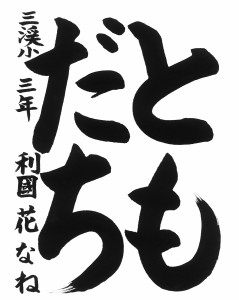 とも
だち
三溪小 三年 利國 花なね